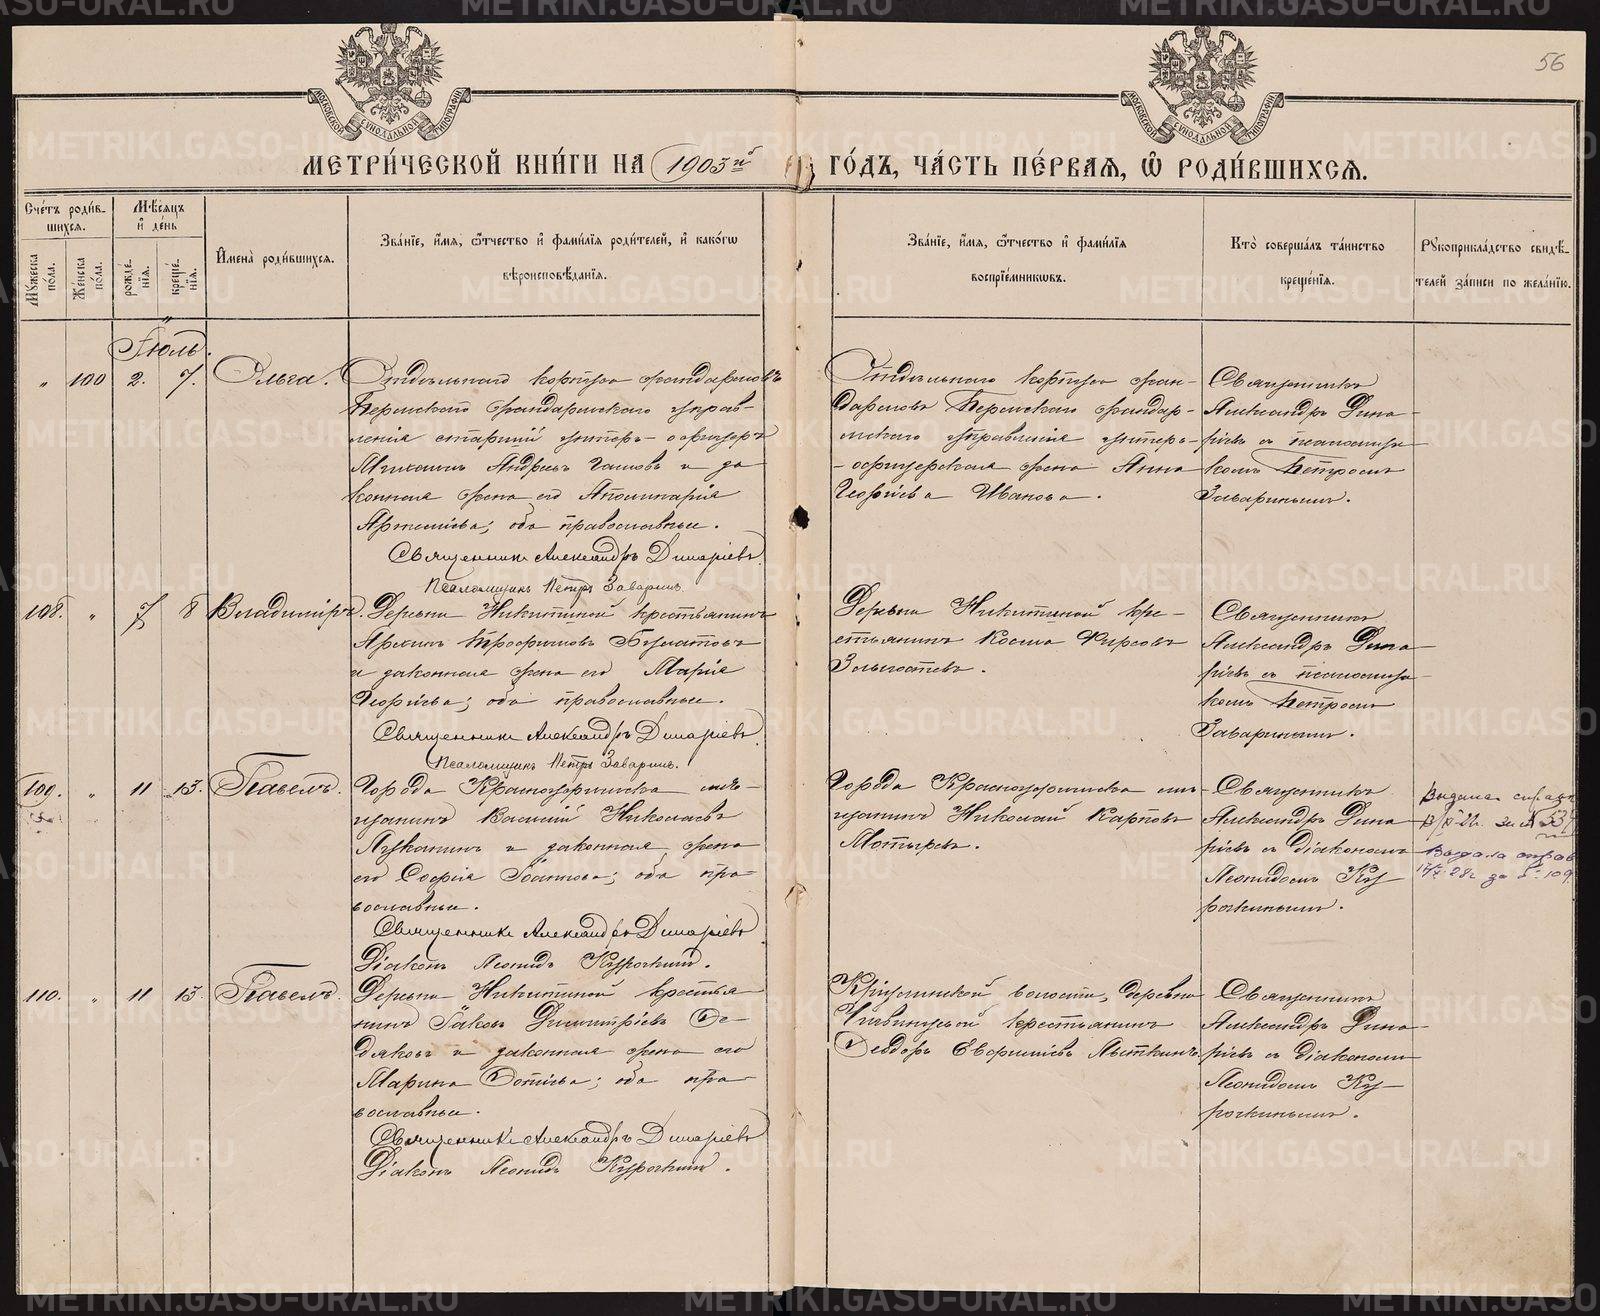 56
МОСКОВСКОЙ СѴНОДАЛЬНОЙ ТИПОГРАФІИ
МОСКОВСКОЙ СѴНОДАЛЬНОЙ ТИПОГРАФІИ
МЕТРИ́ЧЕСКОЙ КНИ́ГИ НА 1903й
ГО́ДЪ, ЧА́СТЬ ПЕ́РВАЯ, Ѡ҆ РОДИ́ВШИХСЯ.
Сче́тъ роди́в-
шихся.
Мꙋ́жеска по́ла.
Же́нска по́ла.
Мѣ́сяцъ
и҆ де́нь
рожде́-нїя.
креще́-нїя.
И҆мена̀ роди́вшихся.
Зва́нїе, и҆́мя, ѻ҆́тчество и҆ фами́лїя роди́телей, и҆ како́гѡ
вѣроисповѣ́данїя.
Зва́нїе, и҆́мя, ѻ҆́тчество и҆ фами́лїя
воспрїе́мникѡвъ.
Кто̀ соверша́лъ та́инство
креще́нїя.
Рꙋкоприкла́дство свидѣ́-
телей за́писи по жела́нїю.
Іюль.
" 100 2. 7. Ольга.
Отдѣльнаго корпуса жандармовъ
Пермскаго жандармскаго управ-
ленія старшій унтеръ-офицеръ
Михаилъ Андреевъ и за
конная жена его Аполинарія
Артеміева; оба православные.
Священникъ Александръ Димаріевъ
Псаломщикъ Петръ Заваринъ.
Отдѣльнаго корпуса жан-
дармовъ Пермскаго жандар-
мскаго управленія унтеръ-
-офицерская жена Анна
Георгіева Иванова.
Священникъ
Александръ Дима-
ріевъ съ псаломщи-
комъ Петромъ
Завариныемъ.
108. " 7 8 Владиміръ.
Деревни Никитиной крестьянинъ
Архипъ Трофимовъ Булатовъ
и законная жена его Марія
Георгіева; оба православные.
Священникъ Александръ Димаріевъ
Псаломщикъ Петръ Заваринъ.
Деревни Никитиной кре-
стьянинъ Косма Фирсовъ
Священникъ
Александръ Дима-
ріевъ съ псаломщи-
комъ Петромъ
Завариныемъ.
109. " 11 13. Павелъ.
Города Красноуфимска мѣ-
щанинъ Василій Николаевъ
Лукианинъ и законная жена
его Софія Іоаннова; оба пра-
вославные.
Священникъ Александръ Димаріевъ
Діаконъ Леонидъ Курочкинъ.
Города Красноуфимска мѣ-
щанинъ Николай Карповъ
Мотыревъ.
Священникъ
Александръ Дима-
ріевъ съ діакономъ
Леонидомъ Ку-
рочкинымъ.
Выдана справк
за № 337
Выдана справ
28г за № 109
110. " 11 13. Павелъ.
Деревни Никитиной крестья
нинъ Іаковъ Димитріевъ Де-
дяковъ и законная жена его
Марина Фотіева; оба пра-
вославные.
Священникъ Александръ Димаріевъ
Діаконъ Леонидъ Курочкинъ.
волости, деревни
крестьянинъ
Ѳеодоръ Евфиміевъ Лыткинъ
Священникъ
Александръ Дима-
ріевъ съ діакономъ
Леонидомъ Ку-
рочкинымъ.
METRIKI.GASO-URAL.RU